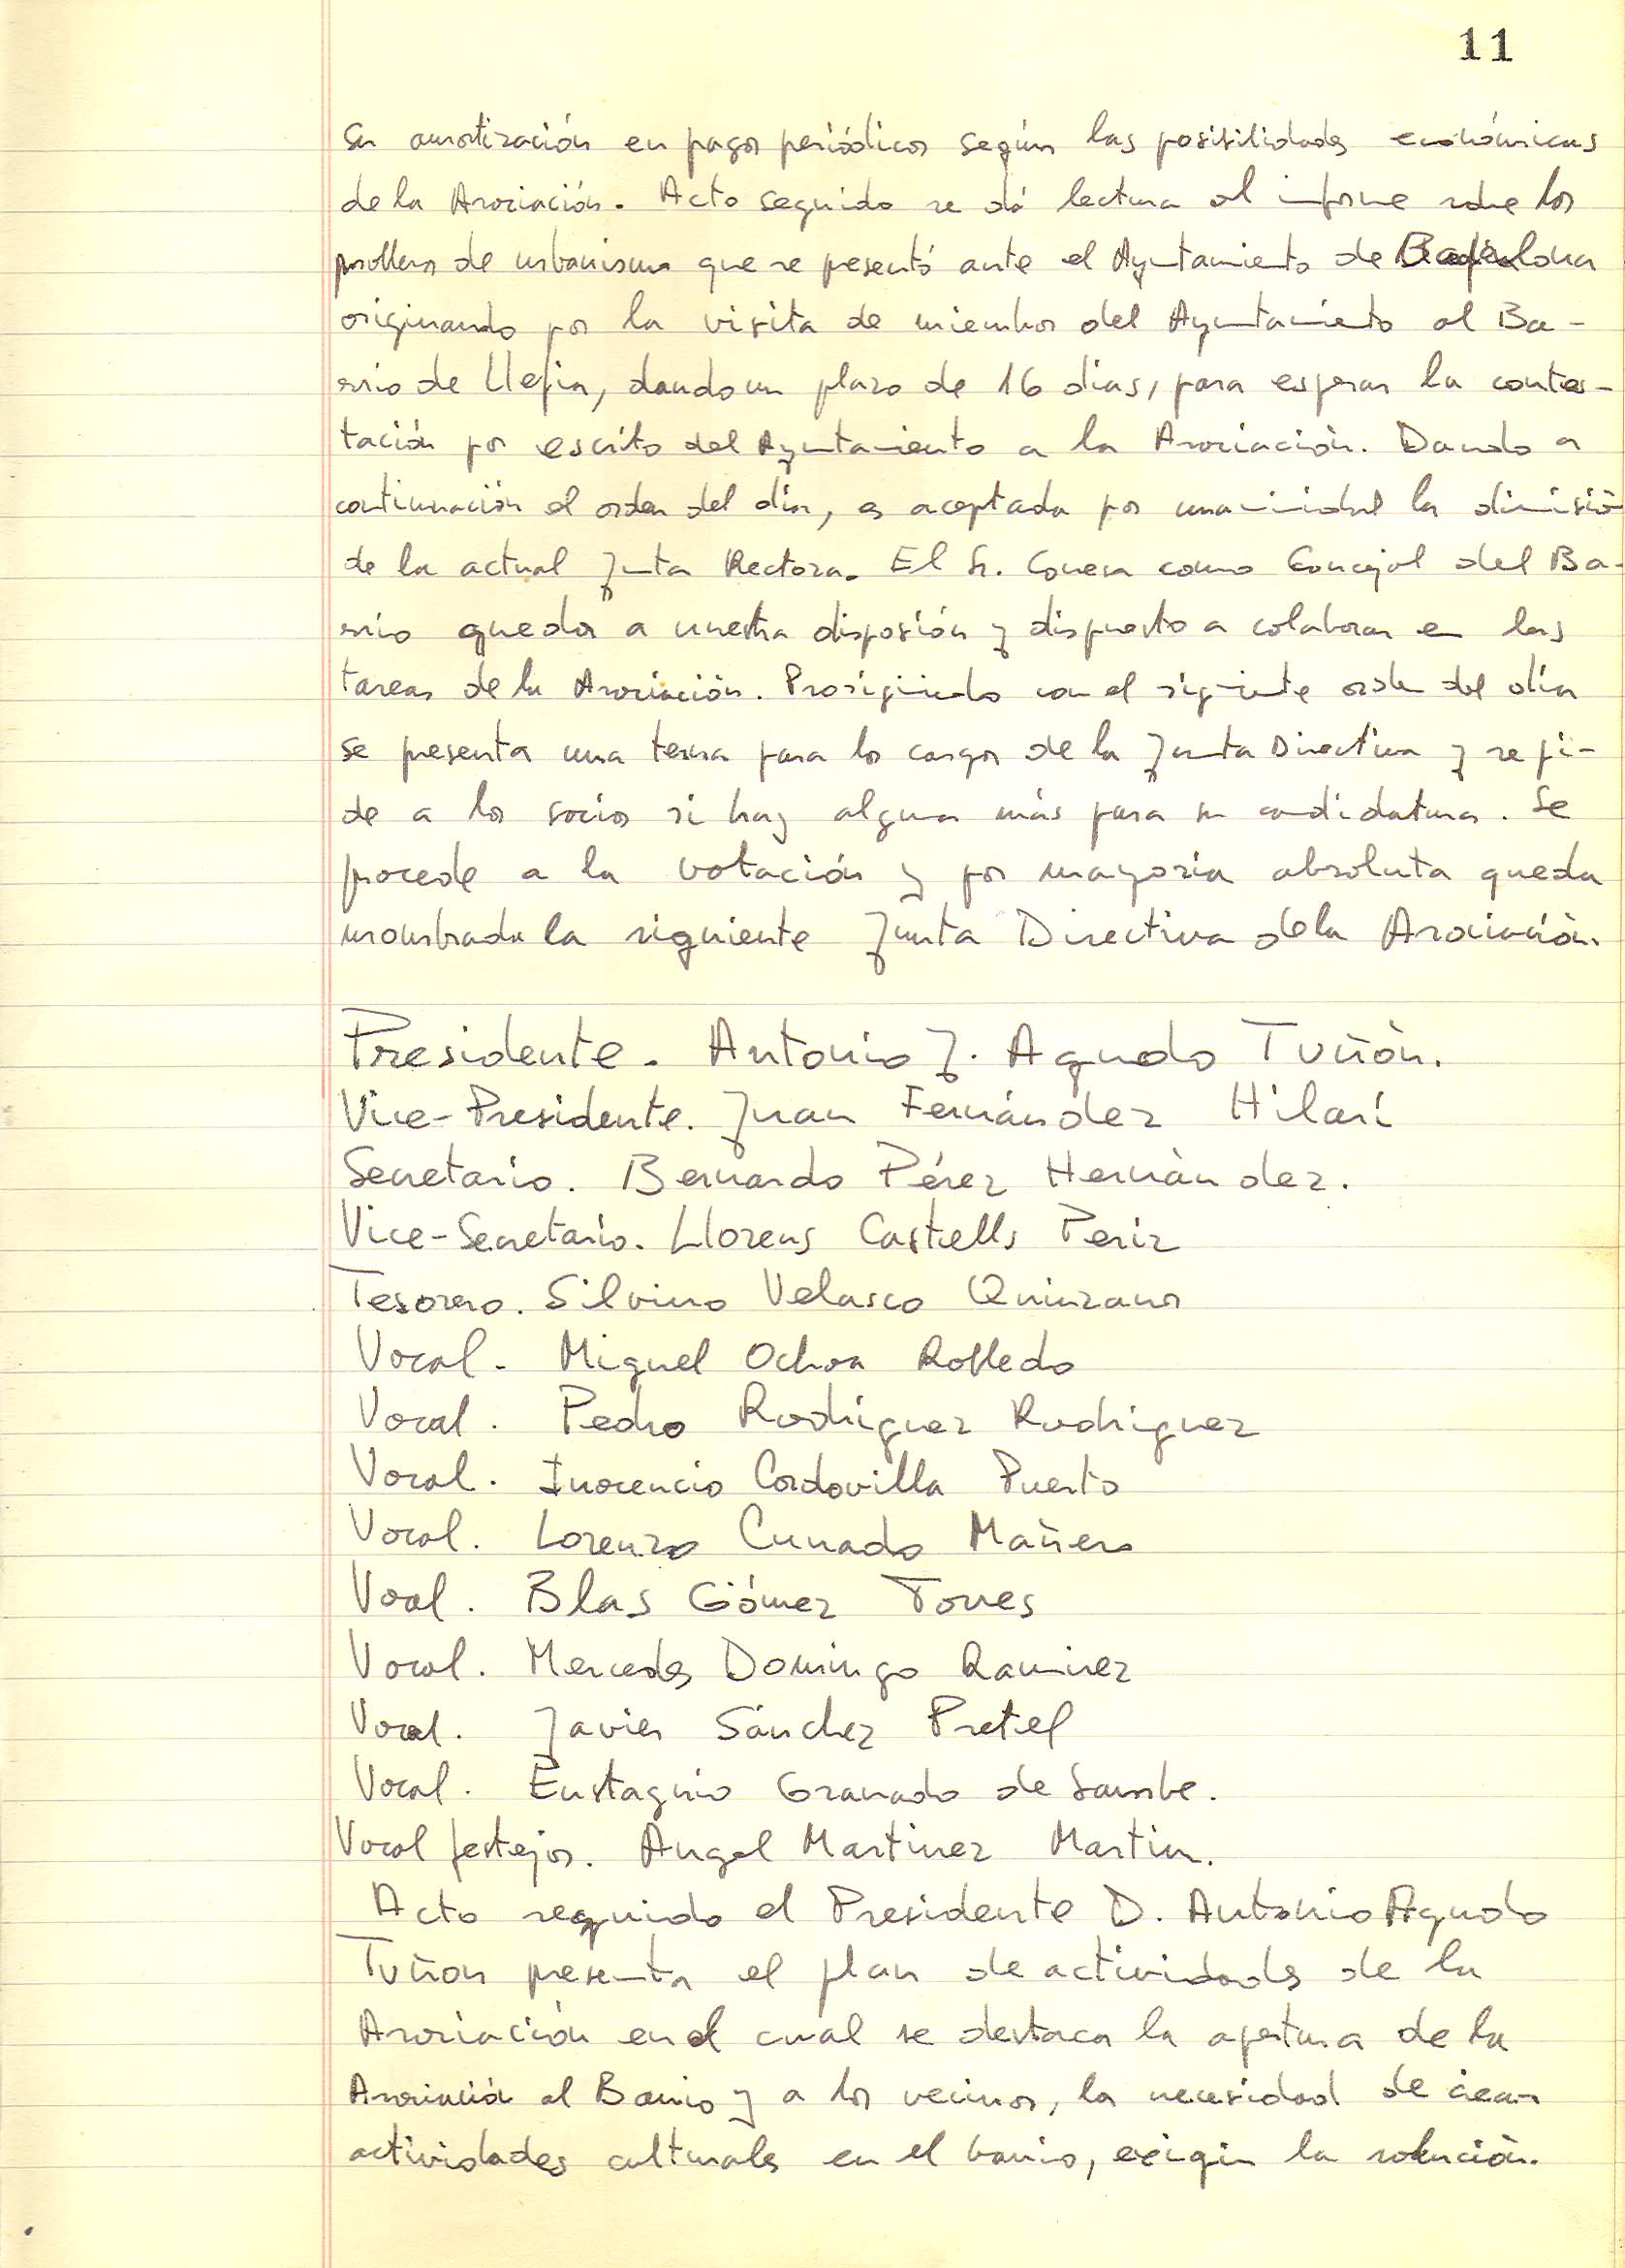 11
su amortización en pagos periódicos según las posibilidades económicas
de la Asociación. Acto seguido se dá lectura al informe sobre los
problemas de urbanismo que se presentó ante el Ayuntamiento de Badalona
originando por la visita de miembros del Ayuntamiento al Ba-
rrio de Llefia, dando un plazo de 16 dias, para esperar la contes-
tación por escrito del Ayuntamiento a la Asociación. Dando a
continuación el orden del dia, es aceptada por unanimidad la dimisió
de la actual Junta Rectora. El Sr. Conesa como Concejal del Ba-
rrio queda a nuestra disposión y dispuesto a colaborar en las
tareas de la Asociación. Prosiguiendo con el siguiente orden del dia
se presenta una terna para los cargos de la Junta Directiva y se pi-
de a los socios si hay alguna más para su candidatura. Se
procede a la votación y por mayoria absoluta queda
nombrada la siguiente Junta Directiva de la Asociación.
Presidente. Antonio J. Agudo Tuñón.
Vice-Presidente. Juan Fernández Hilari
Secretario. Bernardo Pérez Hernández.
Vice-Secretario. Llorens Castells Periz
Tesorero. Silvino Velasco Quinzanos
Vocal. Miguel Ochoa Robledo
Vocal. Pedro Rodriguez Rodriguez
Vocal. Inocencio Cordovilla Puerto
Vocal. Lorenzo Cunado Mañero
Vocal. Blas Gómez Torres
Vocal. Mercedes Domingo Ramirez
Vocal. Javier Sánchez Pretel
Vocal. Eustaquio Granado de
Vocal festejos. Angel Martinez Martin.
Acto seguido el Presidente D. Antonio Agudo
Tuñon presenta el plan de actividades de la
Asociación en el cual se destaca la apertura de la
Asociació al Barrio y a los vecinos, la necesidad de crear
actividades culturales en el barrio, exigir la solución.